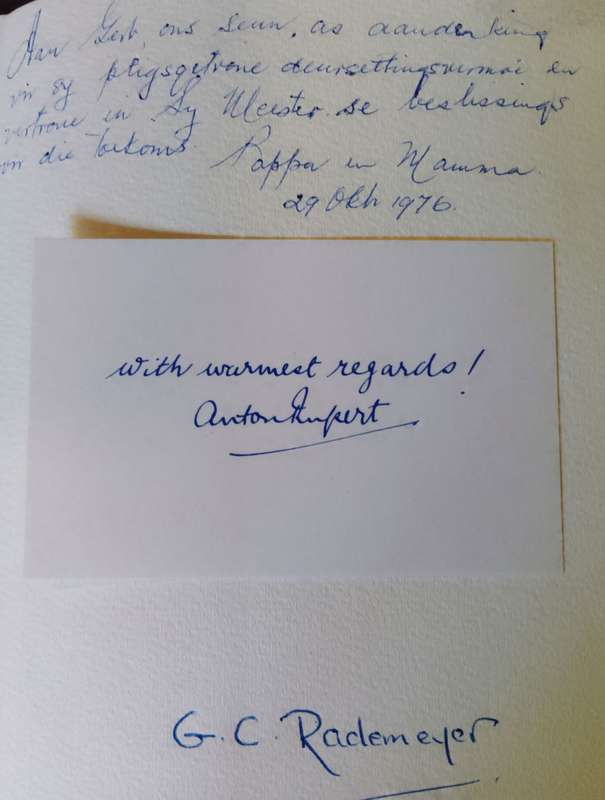 Aan Gert, ons seun, as aandenking
vir sy pligsgetroue deursettingsvermoë en
vertroue in Sy Meester se beslissings
vir die toekoms. Pappa en Mamma.
29 Okt 1976.
with warmest regards!
Anton Rupert
G. C. Rademeyer